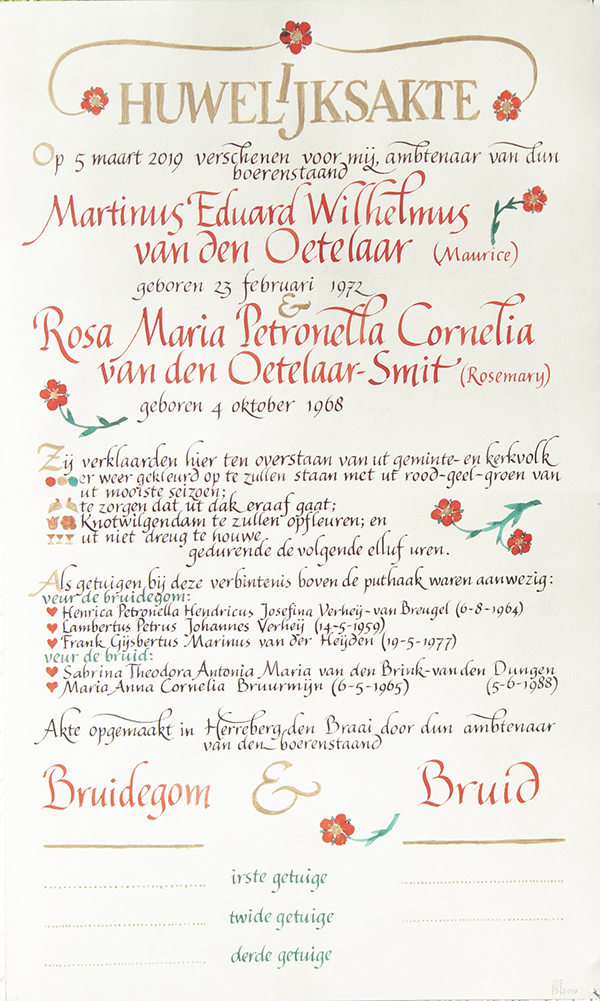 HUWELIJKSAKTE
Op 5 maart 2019 verschenen voor mij, ambtenaar van dun
boerenstaand
Martinus Eduard Wilhelmus
van den Oetelaar (Maurice)
geboren 23 februari 1972
&
Rosa Maria Petronella Cornelia
van den Oetelaar-Smit (Rosemary)
geboren 4 oktober 1968
Zij verklaarden hier ten overstaan van ut geminte- en kerkvolk
er weer gekleurd op te zullen staan met ut rood-geel-groen van
ut mooiste seizoen;
te zorgen dat ut dak eraaf gaat;
Knotwilgendam te zullen opfleuren; en
ut niet dreug te houwe
gedurende de volgende elluf uren.
Als getuigen bij deze verbintenis boven de puthaak waren aanwezig:
veur de bruidegom:
Henrica Petronella Hendricus Josefina Verheij-van Breugel (6-8-1964)
Lambertus Petrus Johannes Verheij (14-5-1959)
Frank Gijsbertus Marinus van der Heijden (19-5-1977)
veur de bruid:
Sabrina Theodora Antonia Maria van den Brink-van den Dungen
(5-6-1988)
Maria Anna Cornelia Bruurmijn (6-5-1965)
Akte opgemaakt in Herreberg den Braai door dun ambtenaar
van den boerenstaand
Bruidegom & Bruid
irste getuige
twide getuige
derde getuige